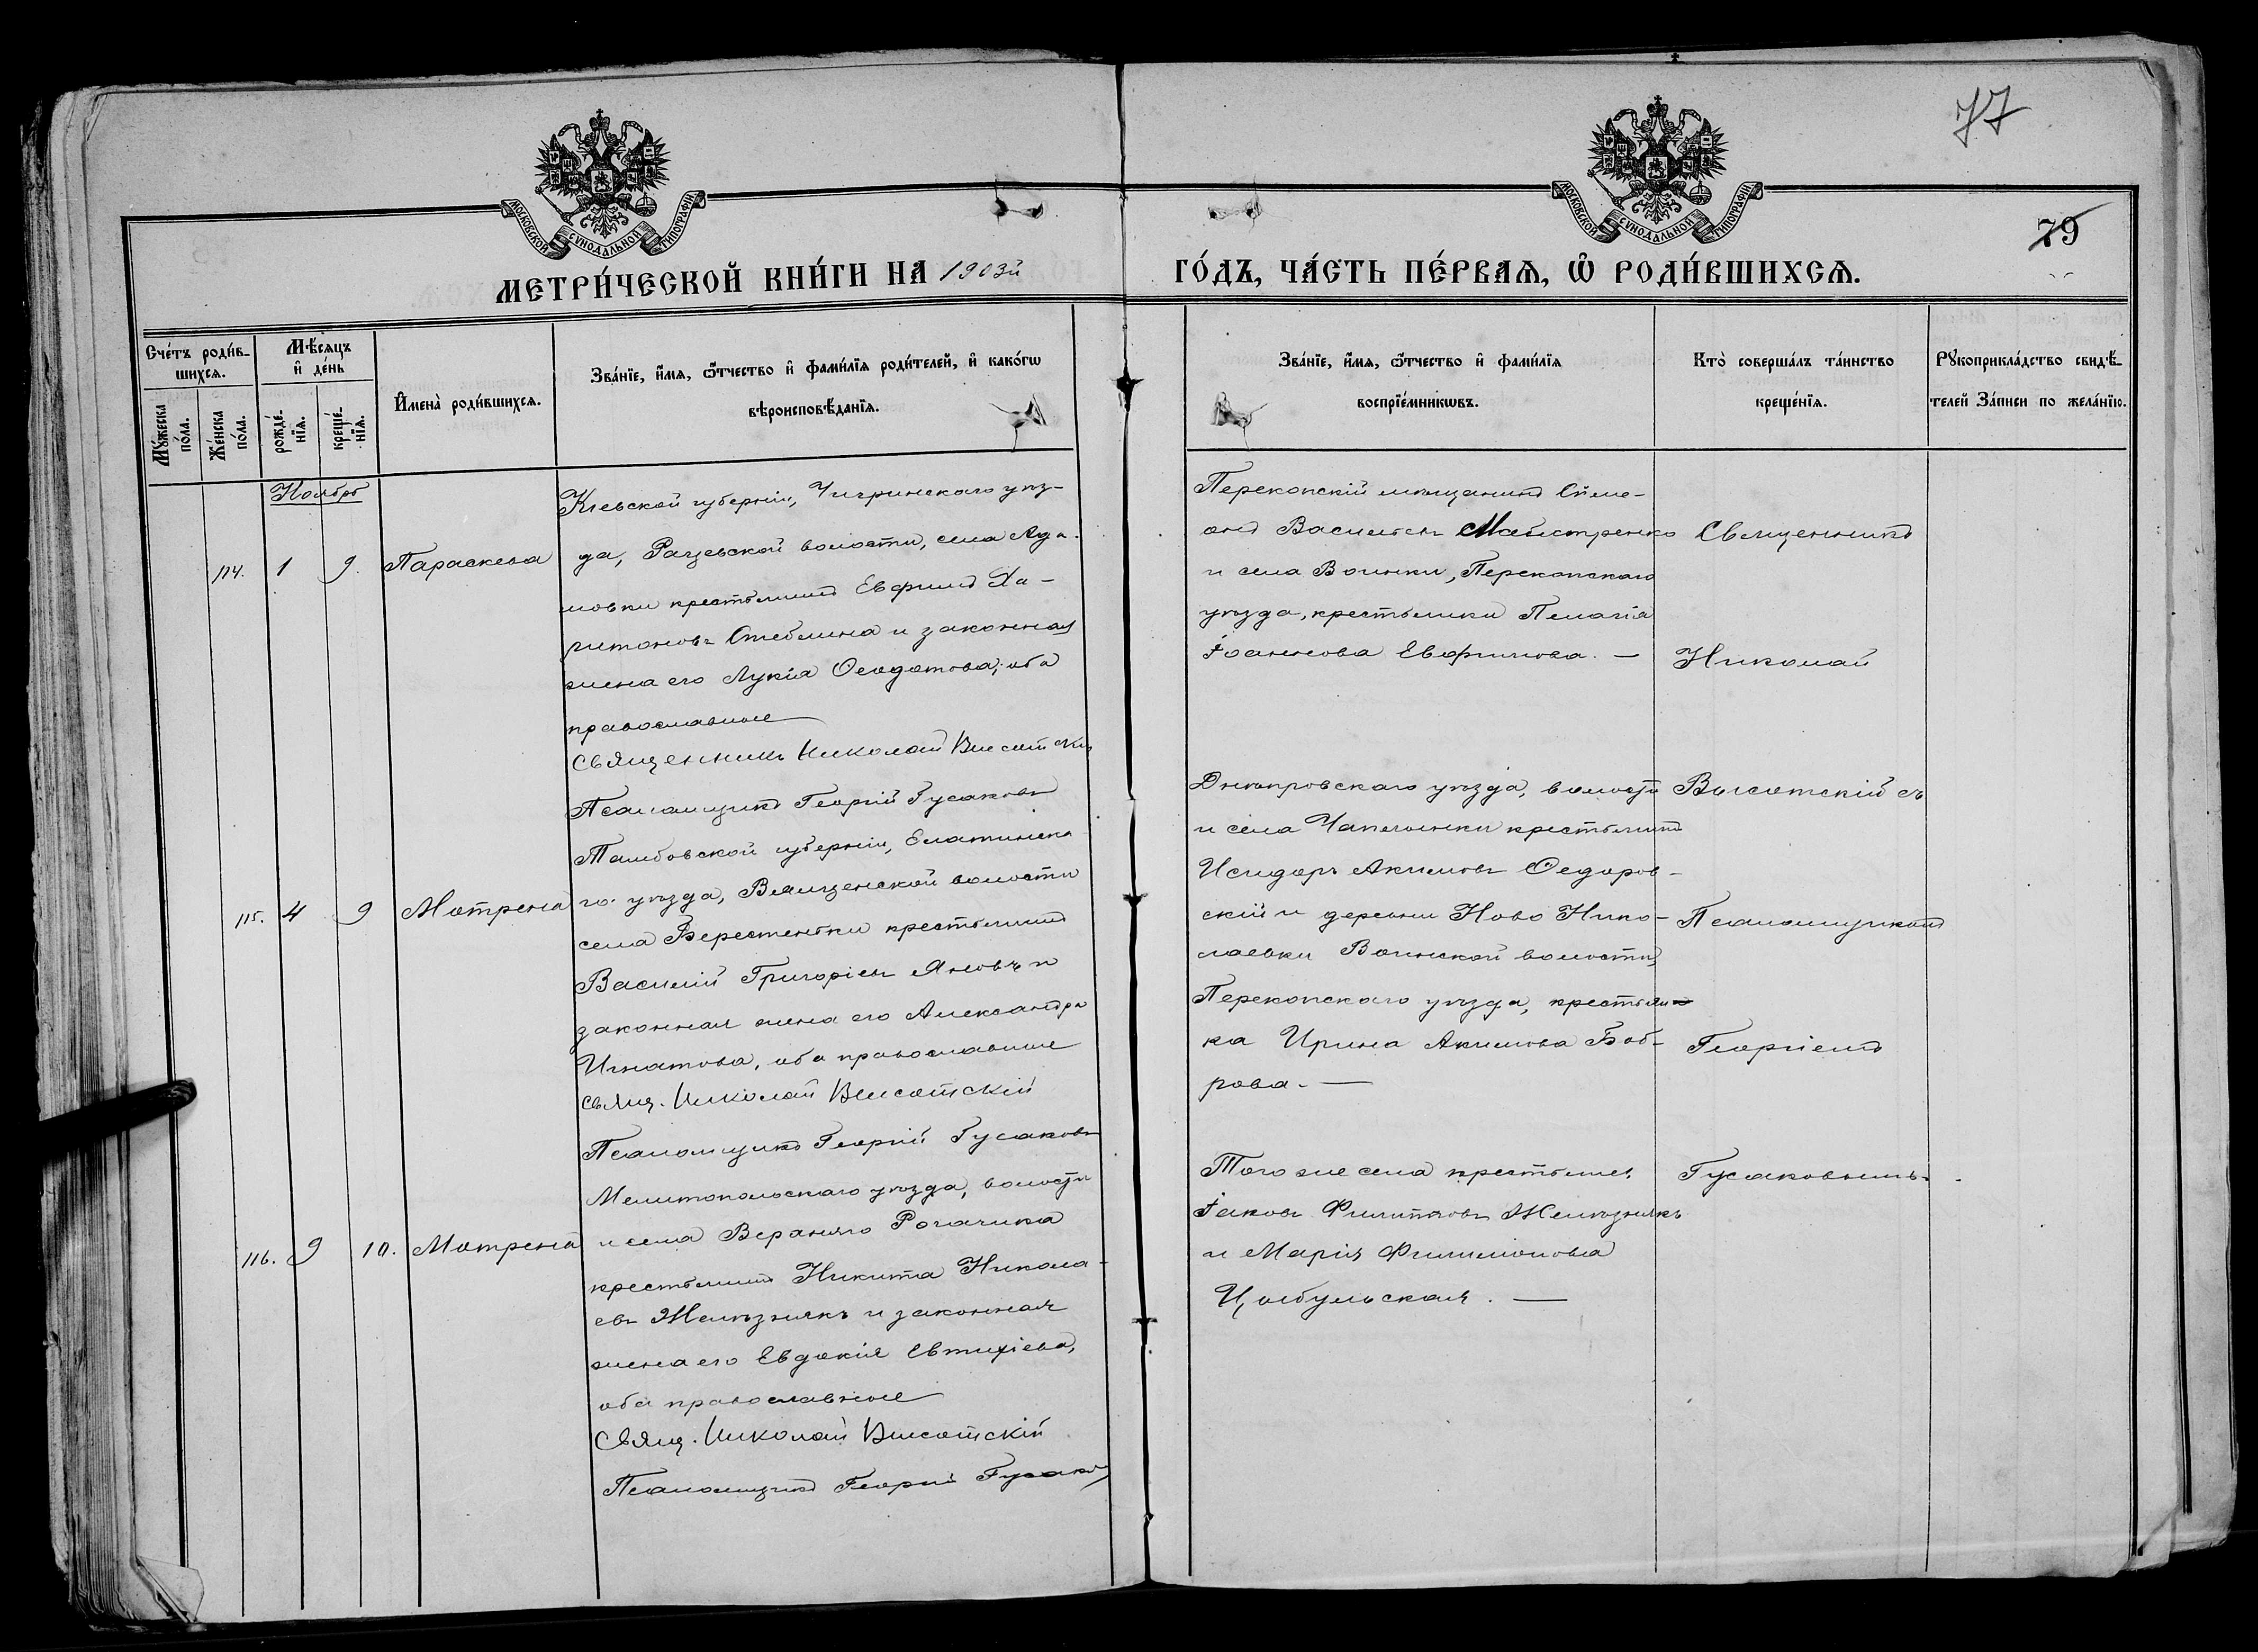 77
79
МОСКОВСКОЙ СѴНОДАЛЬНОЙ ТИПОГРАФІИ
МОСКОВСКОЙ СѴНОДАЛЬНОЙ ТИПОГРАФІИ
МЕТРИ́ЧЕСКОЙ КНИ́ГИ НА 1903й
ГО́ДЪ, ЧА́СТЬ ПЕ́РВАѦ, Ѡ҆ РОДИ́ВШИХСѦ.
Сче́тъ роди́в-
шихсѧ.
Мꙋ́жеска
по́ла.
Же́нска
по́ла.
Мѣ́сѧцъ
и҆ де́нь
рожде́-
нїѧ.
креще́-
нїѧ.
И҆мена̀ роди́вшихсѧ.
Зва́нїе, и҆́мѧ, ѻ҆́тчество и҆ фами́лїѧ роди́телей, и҆ како́гѡ
вѣроисповѣ́данїѧ.
Зва́нїе, и҆́мѧ, ѻ҆́тчество и҆ фами́лїѧ
воспрїе́мникѡвъ.
Кто̀ соверша́лъ та́инство
креще́нїѧ.
Рꙋкоприкла́дство свидѣ́-
телей За́писи по жела́нїю.
Ноябрь
114. 1 9. Параскева
Кіевской губерніи, Чигринскаго уѣз-
да, Рацевской волости, села Ада-
мовки крестьянинъ Евфимъ Ха-
ритоновъ Стеблина и законная
жена его Лукія Ѳеодотова; оба
православные
Священникъ Николай Высотскій
Псаломщикъ Георгій Гусаковъ
Перекопскій мѣщанинъ Сѵме-
онъ Васильевъ Майстренко
и села Воинки, Перекопскаго
уѣзда, крестьянка Пелагія
Іоаннова Евфимова. —
115. 4 9 Мотрена
Тамбовской губерніи, Елатинска
го уѣзда, Вялценской волости
села Берестенки крестьянинъ
Василій Григоріевъ Яновъ и
законная жена его Александра
Игнатова, оба православные
Свящ. Николай Высотскій
Псаломщикъ Георгій Гусаковъ
Днѣпровскаго уѣзда, волости
и села Чаплинки крестьянинъ
Исидоръ Акимовъ Ѳедоров-
скій и деревни Ново Нико-
лаевки Воинской волости,
Перекопскаго уѣзда, крестьян-
ка Ирина Акимова Боб-
рова. —
116. 9 10. Мотрена
Мелитопольскаго уѣзда, волости
и села Верхняго Рогачика
крестьянинъ Никита Никола-
евъ Желѣзнякъ и законная
жена его Евдокія Евтихіева,
оба православные
Свящ. Николай Высотскій
Псаломщикъ Георгій Гусаковъ
Того же села крестьяне
Іаковъ Филипповъ Желѣзнякъ
и Марія Филимонова
Цыбульская. —
Священникъ
Николай
Высотскій съ
Псаломщикомъ
Георгіемъ
Гусаковымъ.